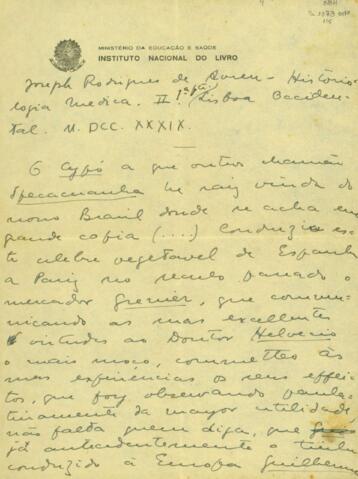 MINISTÉRIO DA EDUCAÇÃO E SAÚDE
INSTITUTO NACIONAL DO LIVRO
Joseph Rodrigues de Avreu - Historio-
logia Medica. II. 1ª pte. Lisboa Occiden-
tal. M. DCC. XXXIX.
O Cypó a que outros chamão
Ipecacuanha he raiz vinda do
nosso Brasil donde se acha em
grande copia (....) Conduzio es-
te celebre vegetavel de Espanha
a Pariz no seculo passado o
mercador Grenier, que commu-
nicando as suas excellentes
virtudes ao Doutor Helvecio
o mais moço, commetteo às
suas experiencias os seus effei-
tos, que foy observando paula-
tinamente da mayor utilidade,
não falta quem diga, que
já antecedentemente o tinha
conduzido à Europa Guilherme